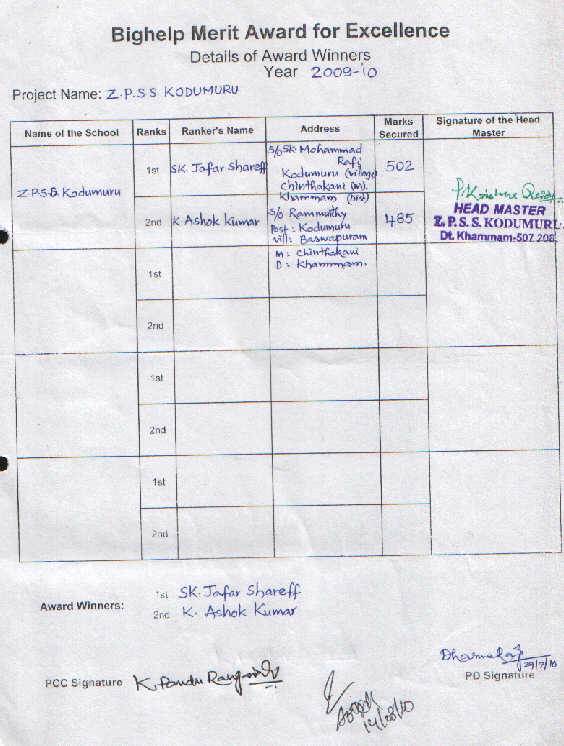 Bighelp Merit Award for Excellence
Details of Award Winners
Year 2009-10
Project Name: Z.P.S.S KODUMURU
Name of the School Ranks Ranker's Name Address Marks Secured Signature of the Head Master
Z.P.S.S. Kodumuru
1st SK. Jafar Shareff 502
S/o SK Mohammad
Rafi
Kodumuru (village)
Chinthakani (M).
Khammam (Dist)
2nd K Ashok Kumar 485
S/o Rammurthy
Post: Kodumuru
Vill: Baswapuram
M: Chinthakani
D: Khammam.
HEAD MASTER
Z.P.S.S. KODUMURU.
Dt. Khammam-507 208.
1st
2nd
1st
2nd
1st
2nd
Award Winners:
1st SK. Jafar Shareff
2nd K. Ashok Kumar
PCC Signature K. Pandu
29/7/10
PD Signature
14/08/10